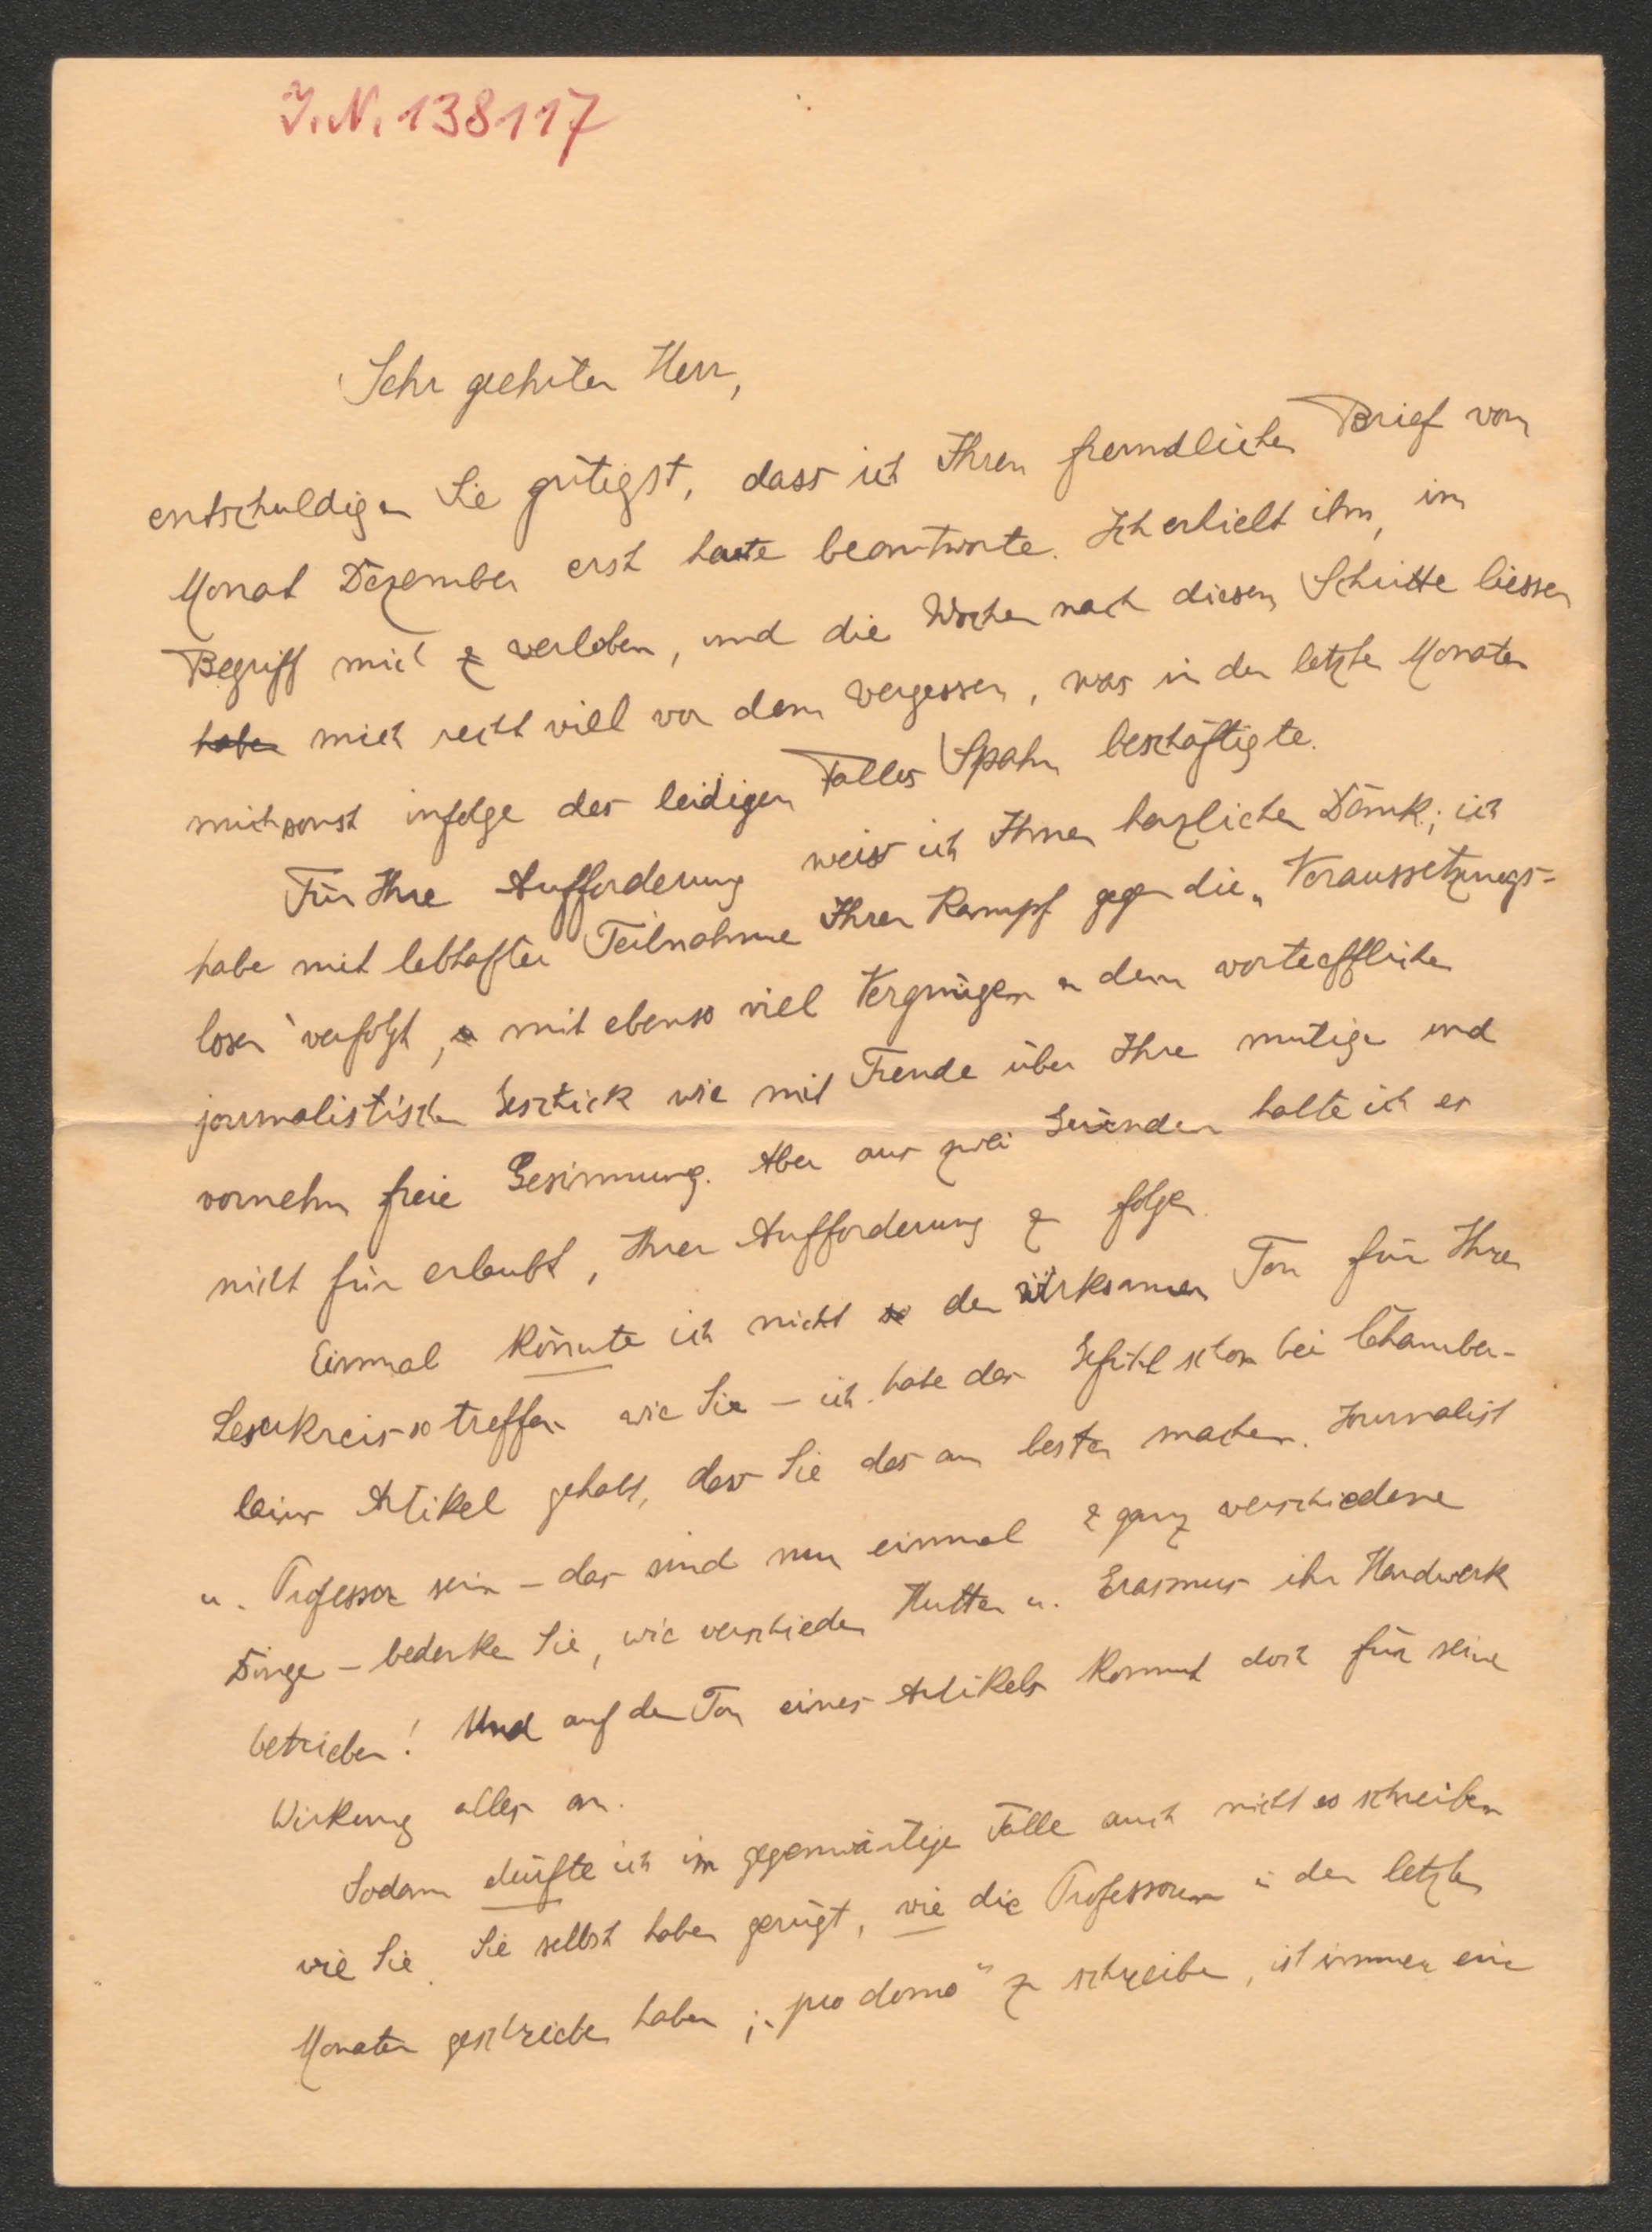 I.N. 138117
Sehr geehrter Herr,
entschuldigen Sie gütigst, dass ich Ihren freundlichen Brief vom
Monat Dezember erst heute beantworte. Ich erhielt ihn, im
Begriff mich zu verloben, und die Wochen nach diesem Schritte liessen
haben mich recht viel von dem vergessen, was in den letzten Monaten
mich sonst infolge des leidigen Falles Spahn beschäftigte.
Für Ihre Aufforderung weiss ich Ihnen herzlichen Dank; ich
habe mit lebhafter Teilnahme Ihren Kampf gegen die „Voraussetzungs-
losen“ verfolgt, mit ebenso viel Vergnügen an dem vortrefflichen
journalistischen Geschick wie mit Freude über Ihre mutige und
vornehm freie Gesinnung. Aber aus zwei Gründen halte ich es
nicht für erlaubt, Ihrer Aufforderung zu folgen.
Einmal könnte ich nicht den wirksamen Ton für Ihren
Leserkreis so treffen wie Sie – ich habe das Gefühl schon bei Chamber-
lains Artikel gehabt, dass Sie das am besten machen. Journalist
u. Professor sein – das sind nun einmal 2 ganz verschiedene
Dinge – bedenken Sie, wie verschieden Hutten u. Erasmus ihr Handwerk
betrieben! Und auf den Ton eines Artikels kommt doch für seine
Wirkung alles an.
Sodann dürfte ich im gegenwärtigen Falle auch nicht so schreiben
wie Sie. Sie selbst haben gerügt, wie die Professoren in den letzten
Monaten geschrieben haben; „pro domo“ zu schreiben, ist immer eine